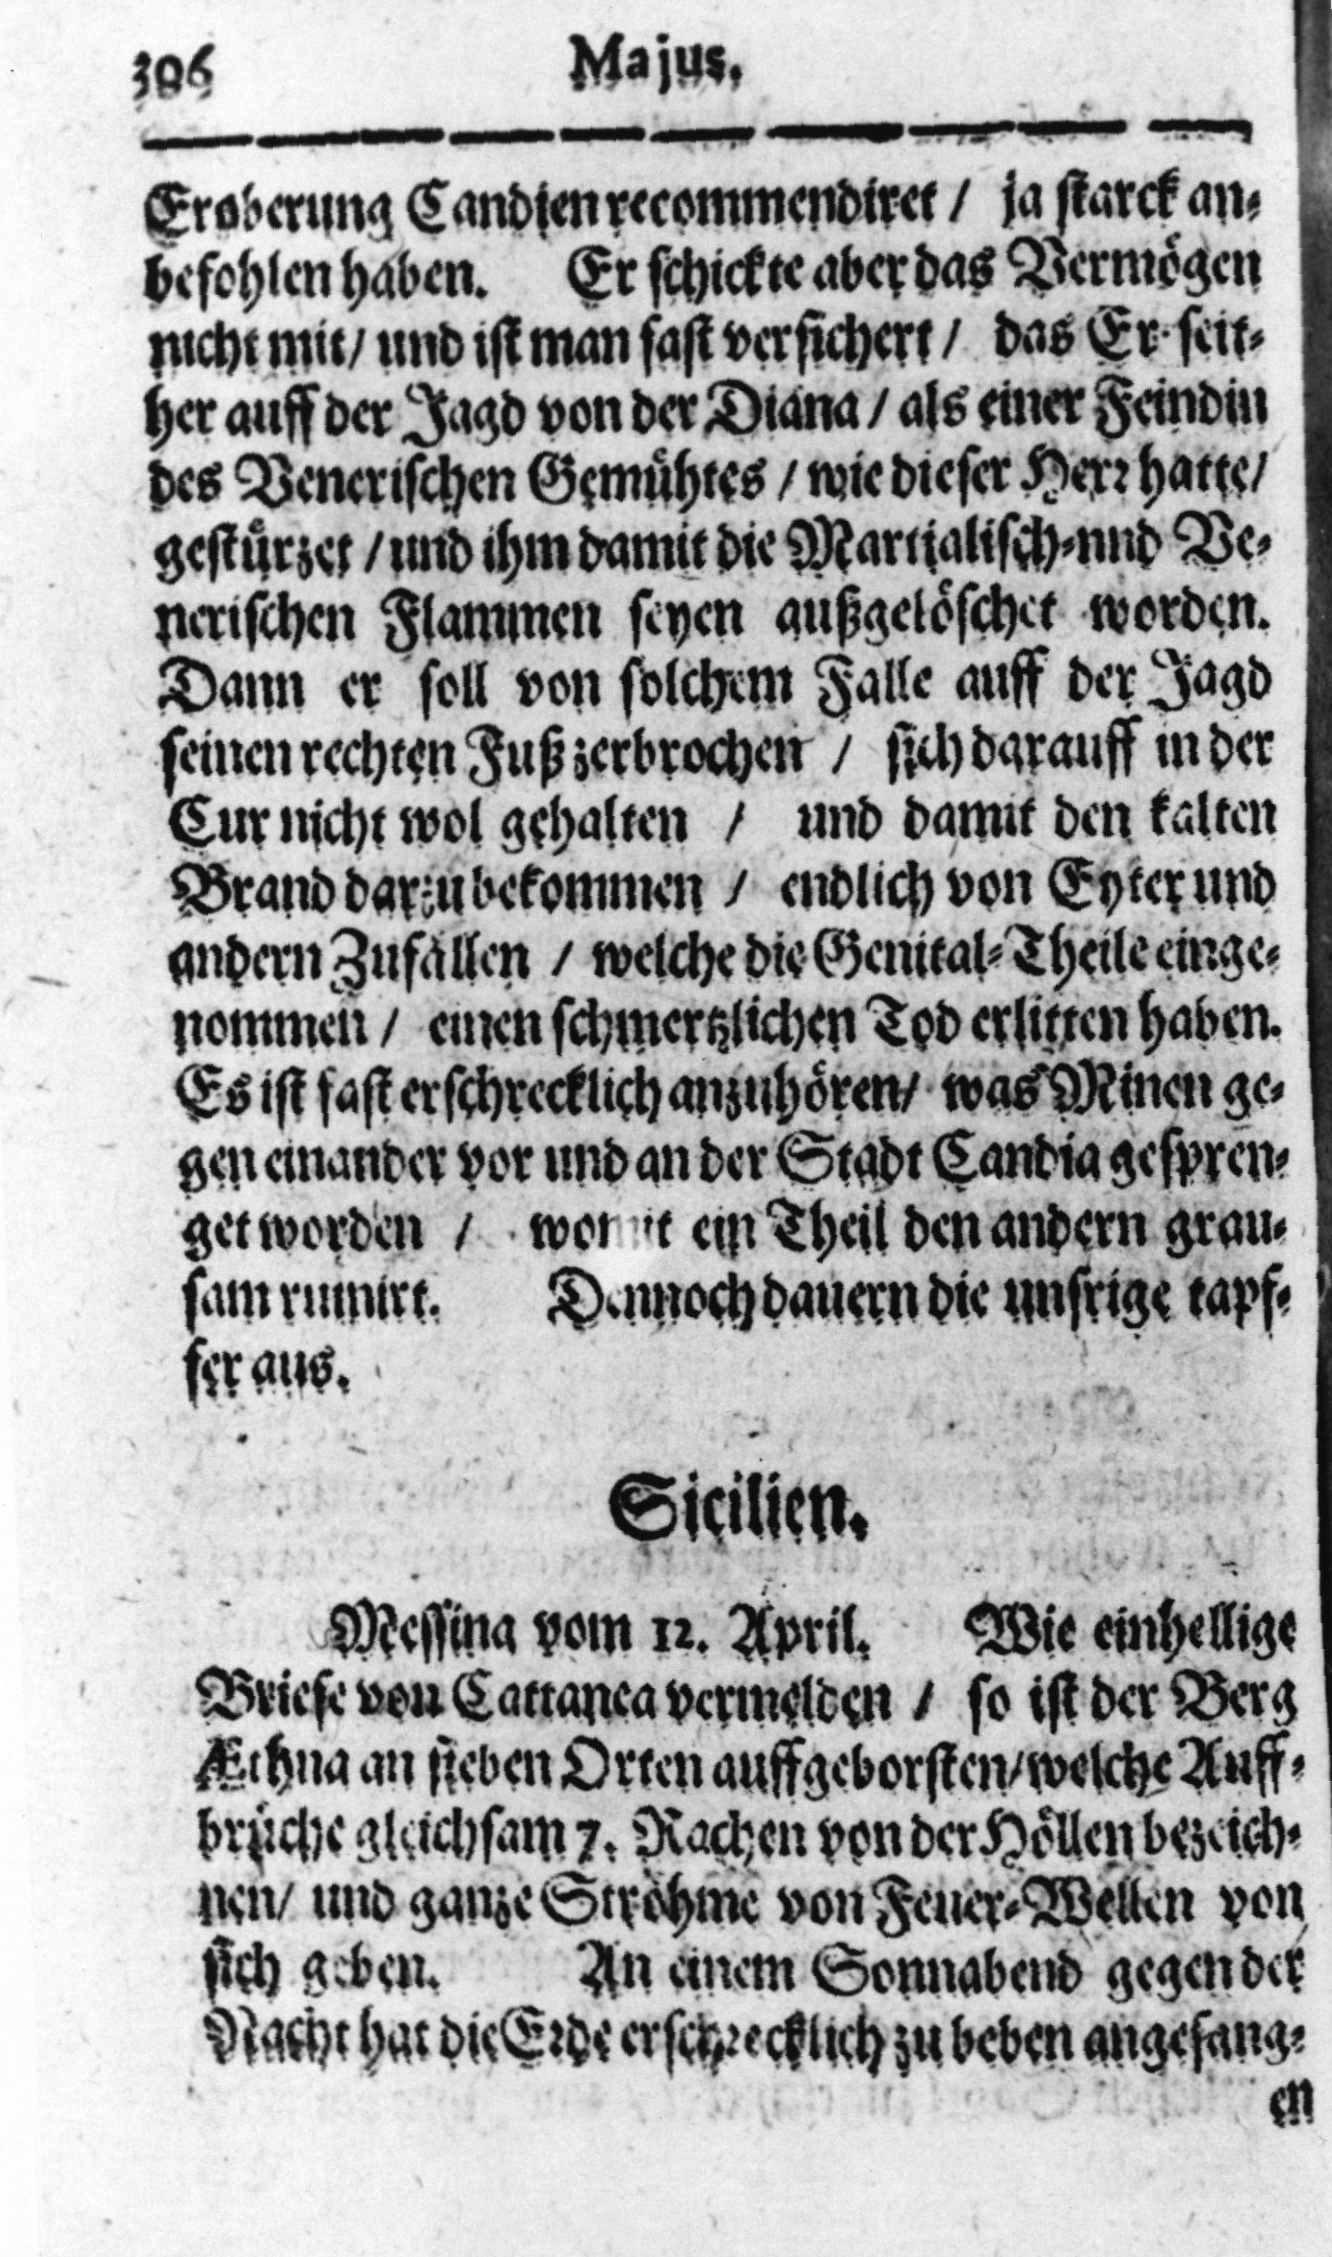 306 Majus.
Eroberung Candien recommendiret / ja starck an-
befohlen haben. Er schickte aber das Vermögen
nicht mit / und ist man fast versichert / das Er seit-
her auff der Jagd von der Diana / als einer Feindin
des Venerischen Gemühtes / wie dieser Herr hatte /
gestürzet / und ihm damit die Martialisch-nnd Ve-
nerischen Flammen seyen außgelöschet worden.
Dann er soll von solchem Falle auff der Jagd
seinen rechten Fuß zerbrochen / sich darauff in der
Cur nicht wol gehalten / und damit den kalten
Brand darzu bekommen / endlich von Eyter und
andern Zufällen / welche die Genital-Theile einge-
nommen / einen schmertzlichen Tod erlitten haben.
Es ist fast erschrecklich anzuhören / was Minen ge-
gen einander vor und an der Stadt Candia gespren-
get worden / womit ein Theil den andern grau-
sam ruinirt. Dennoch dauern die unsrige tapf-
fer aus.
Sicilien.
Messina vom 12. April. Wie einhellige
Briefe von Cattanea vermelden / so ist der Berg
Æthna an sieben Orten auffgeborsten / welche Auff-
brüche gleichsam 7. Rachen von der Höllen bezeich-
nen / und ganze Ströhme von Feuer-Wellen von
sich geben. An einem Sonnabend gegen der
Nacht hat die Erde erschrecklich zu beben angefang-
en